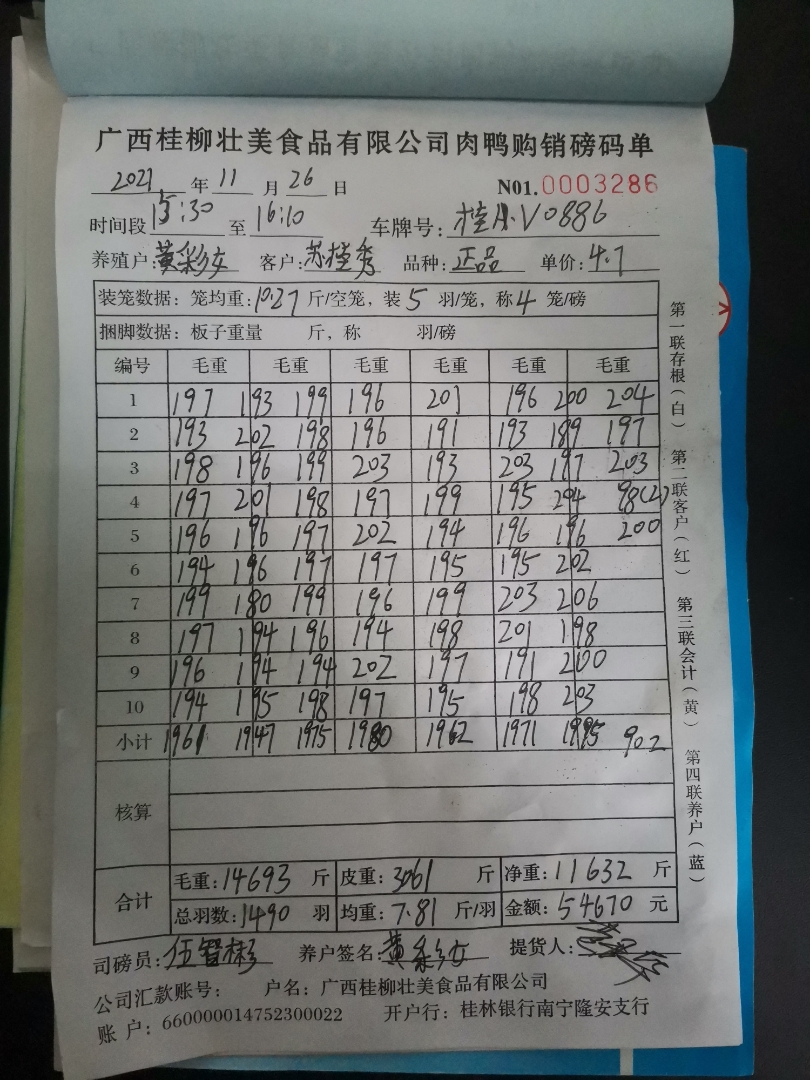 广西桂柳壮美食品有限公司肉鸭购销磅码单
2021 年 11 月 26 日 N01.0003286
时间段 15:30 至 16:10 车牌号: 桂A.V0886
养殖户: 黄彩女 客户: 苏桂秀 品种: 正品 单价: 4.7
装笼数据: 笼均重: 10.27 斤/空笼, 装 5 羽/笼, 称 4 笼/磅
捆脚数据: 板子重量 斤, 称 羽/磅
编号 毛重 毛重 毛重 毛重 毛重 毛重
1 197 193 199 196 201 196 200 204
2 193 202 198 196 191 193 189 197
3 198 196 199 203 193 203 197 203
4 197 201 198 197 199 195 204 98(2)
5 196 196 197 202 194 196 196 200
6 194 196 197 197 195 195 202
7 199 180 199 196 199 203 206
8 197 194 196 194 198 201 198
9 196 194 194 202 197 191 200
10 194 195 198 197 195 198 203
小计 1961 1947 1975 1980 1962 1971 1995 902
核算
合计 毛重: 14693 斤 皮重: 3061 斤 净重: 11632 斤
总羽数: 1490 羽 均重: 7.81 斤/羽 金额: 54670 元
司磅员: 伍智彬 养户签名: 黄彩女 提货人:
公司汇款账号: 户名: 广西桂柳壮美食品有限公司
账 户: 660000014752300022 开户行: 桂林银行南宁隆安支行
第一联存根(白) 第二联客户(红) 第三联会计(黄) 第四联养户(蓝)